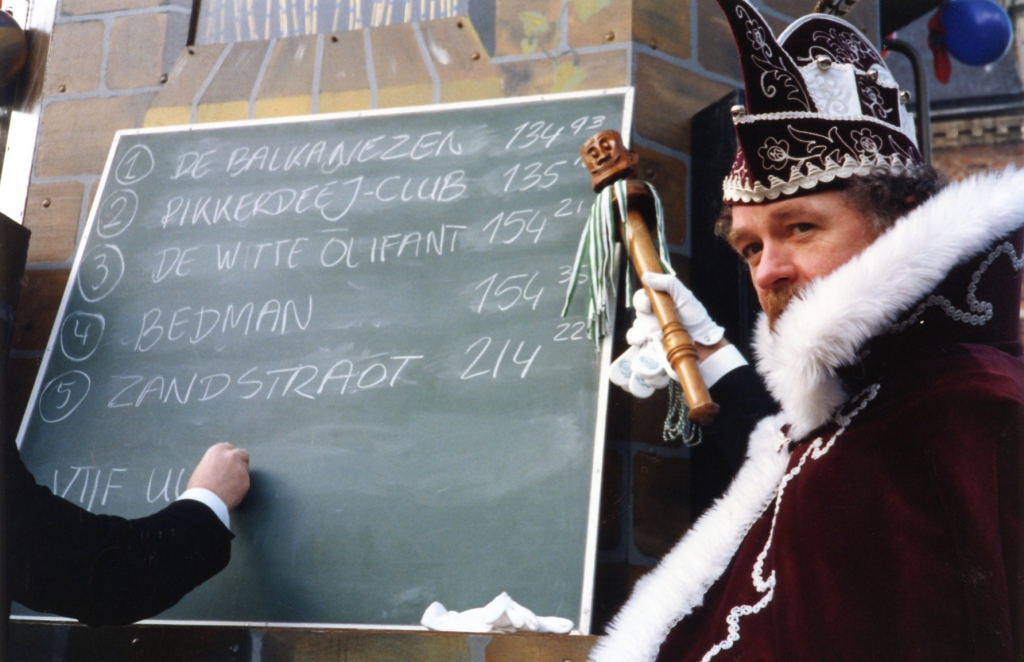 1 DE BALKANEZEN 134 93
2 PIKKERDEEJ-CLUB 135
3 DE WITTE OLIFANT 154 21
4 BEDMAN 154 35
5 ZANDSTRAOT 214 22
VIJF UU